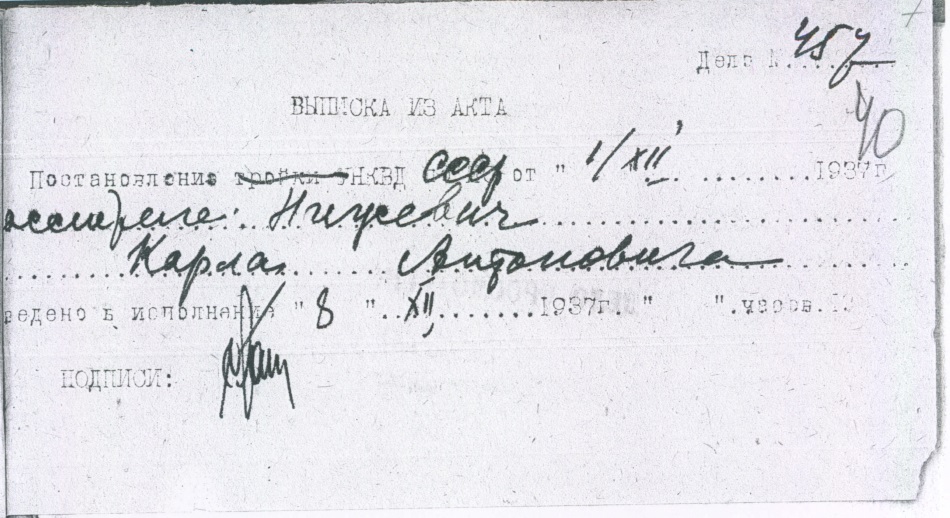 Дело N. 457
40
ВЫПИСКА ИЗ АКТА
Постановление тройки УНКВД СССР от " 1/XII ........1937г
асстреле:
Карла Антоновича
ведено в исполнение " 8 " XII 1937г. " ".часов.
ПОДПИСИ: